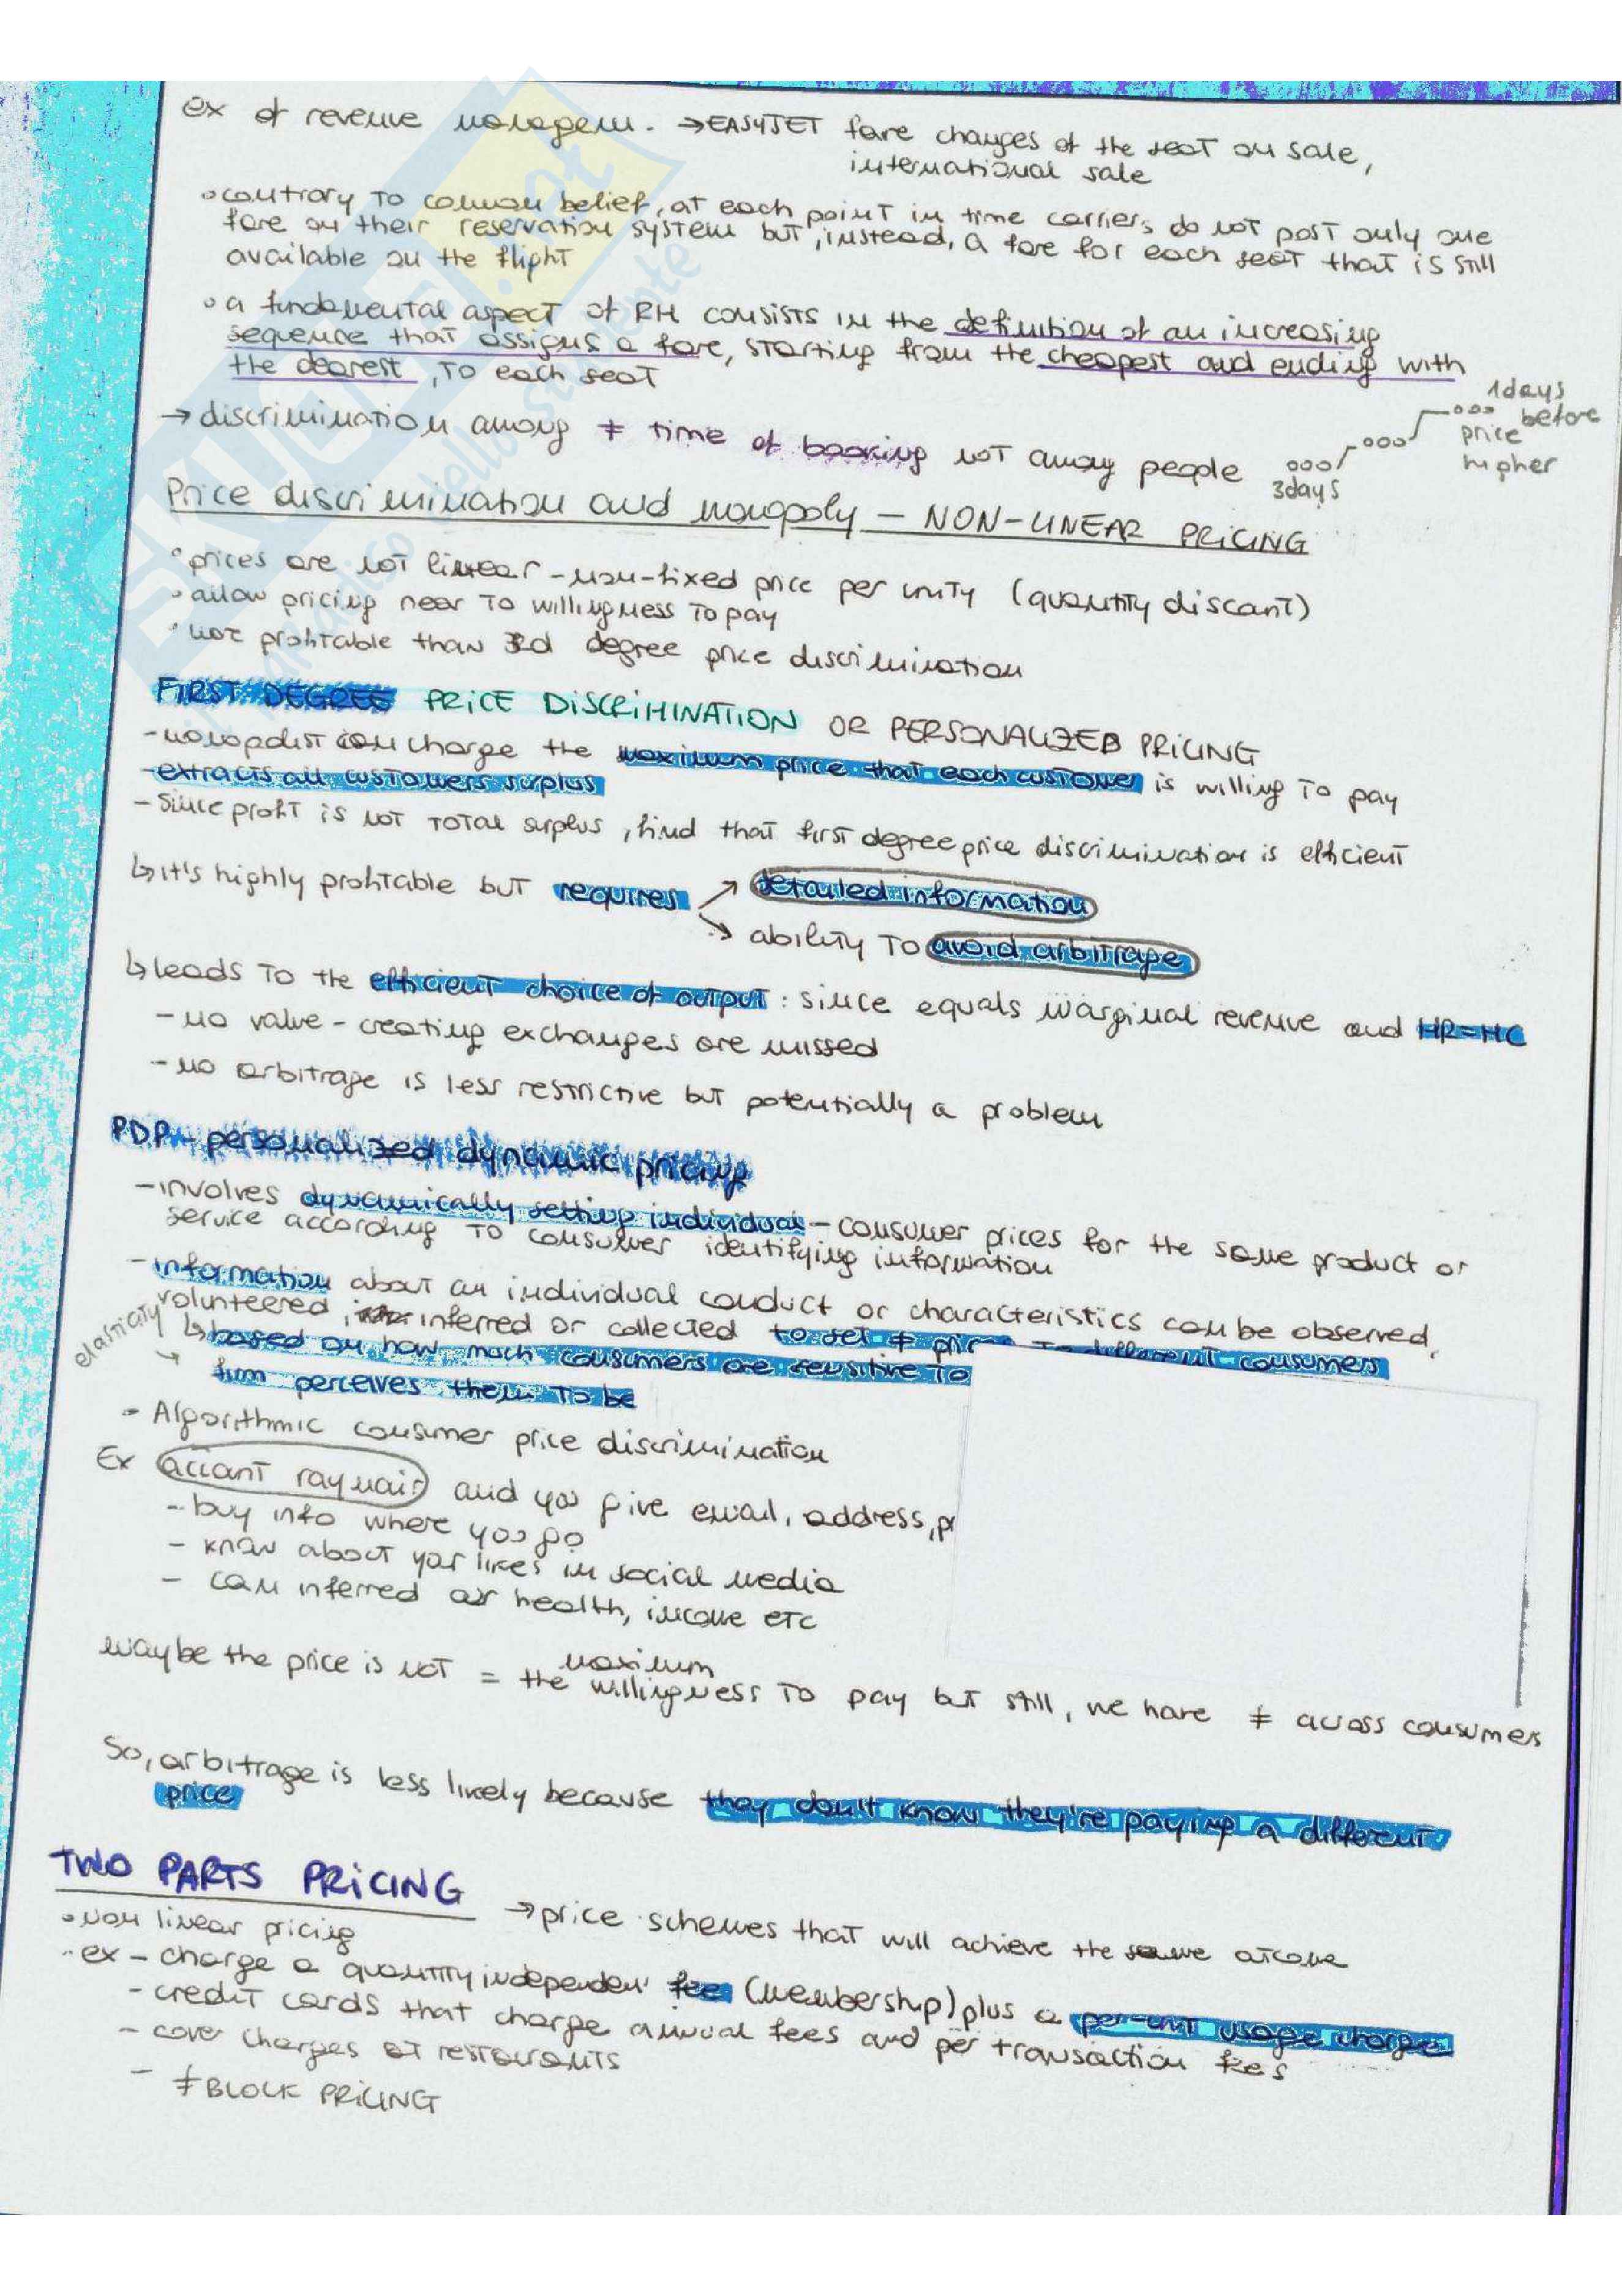 ex of revenue managem. → EASYJET fare changes of the seat on sale,
international sale
• contrary to common belief, at each point in time carriers do not post only one
fare on their reservation system but, instead, a fare for each seat that is still
available on the flight
• a fundamental aspect of RM consists in the definition of an increasing
sequence that assigns a fare, starting from the cheapest and ending with
the dearest, to each seat
→ discrimination among ≠ time of booking not among people
3days
1days
before
price
higher
Price discrimination and monopoly - NON-LINEAR PRICING
• prices are not linear - non-fixed price per unity (quantity discant)
• allow pricing near to willingness to pay
• profitable than 3d degree price discrimination
FIRST DEGREE PRICE DISCRIMINATION OR PERSONALIZED PRICING
- monopolist can charge the maximum price that each customer is willing to pay
- extracts all customers surplus
- Since profit is not total surplus, find that first degree price discrimination is efficient
↳ it's highly profitable but requires ↗ detailed information
↘ ability to avoid arbitrage
↳ leads to the efficient choice of output: since equals marginal revenue and MR=MC
- no value-creating exchanges are missed
- no arbitrage is less restrictive but potentially a problem
PDP - personalized dynamic pricing
- involves dynamically setting individual - consumer prices for the same product or
service according to consumer identifying information
- information about an individual conduct or characteristics can be observed,
volunteered, inferred or collected to set ≠ to different consumers
elasticity → ↳ based on how much consumers are sensitive to
firm perceives them to be
- Algorithmic consumer price discrimination
Ex account raynair and you give email, address, pr
- buy info where you go
- know about your likes in social media
- can inferred our health, income etc
maybe the price is not = the maximum
willingness to pay but still, we have ≠ across consumers
So, arbitrage is less likely because they don't know they're paying a different
price
TWO PARTS PRICING → price schemes that will achieve the same outcome
• non linear pricing
• ex - charge a quantity independent fee (membership) plus a per-unit usage charge
- credit cards that charge annual fees and per transaction fees
- cover charges at restaurants
- ≠ BLOCK PRICING